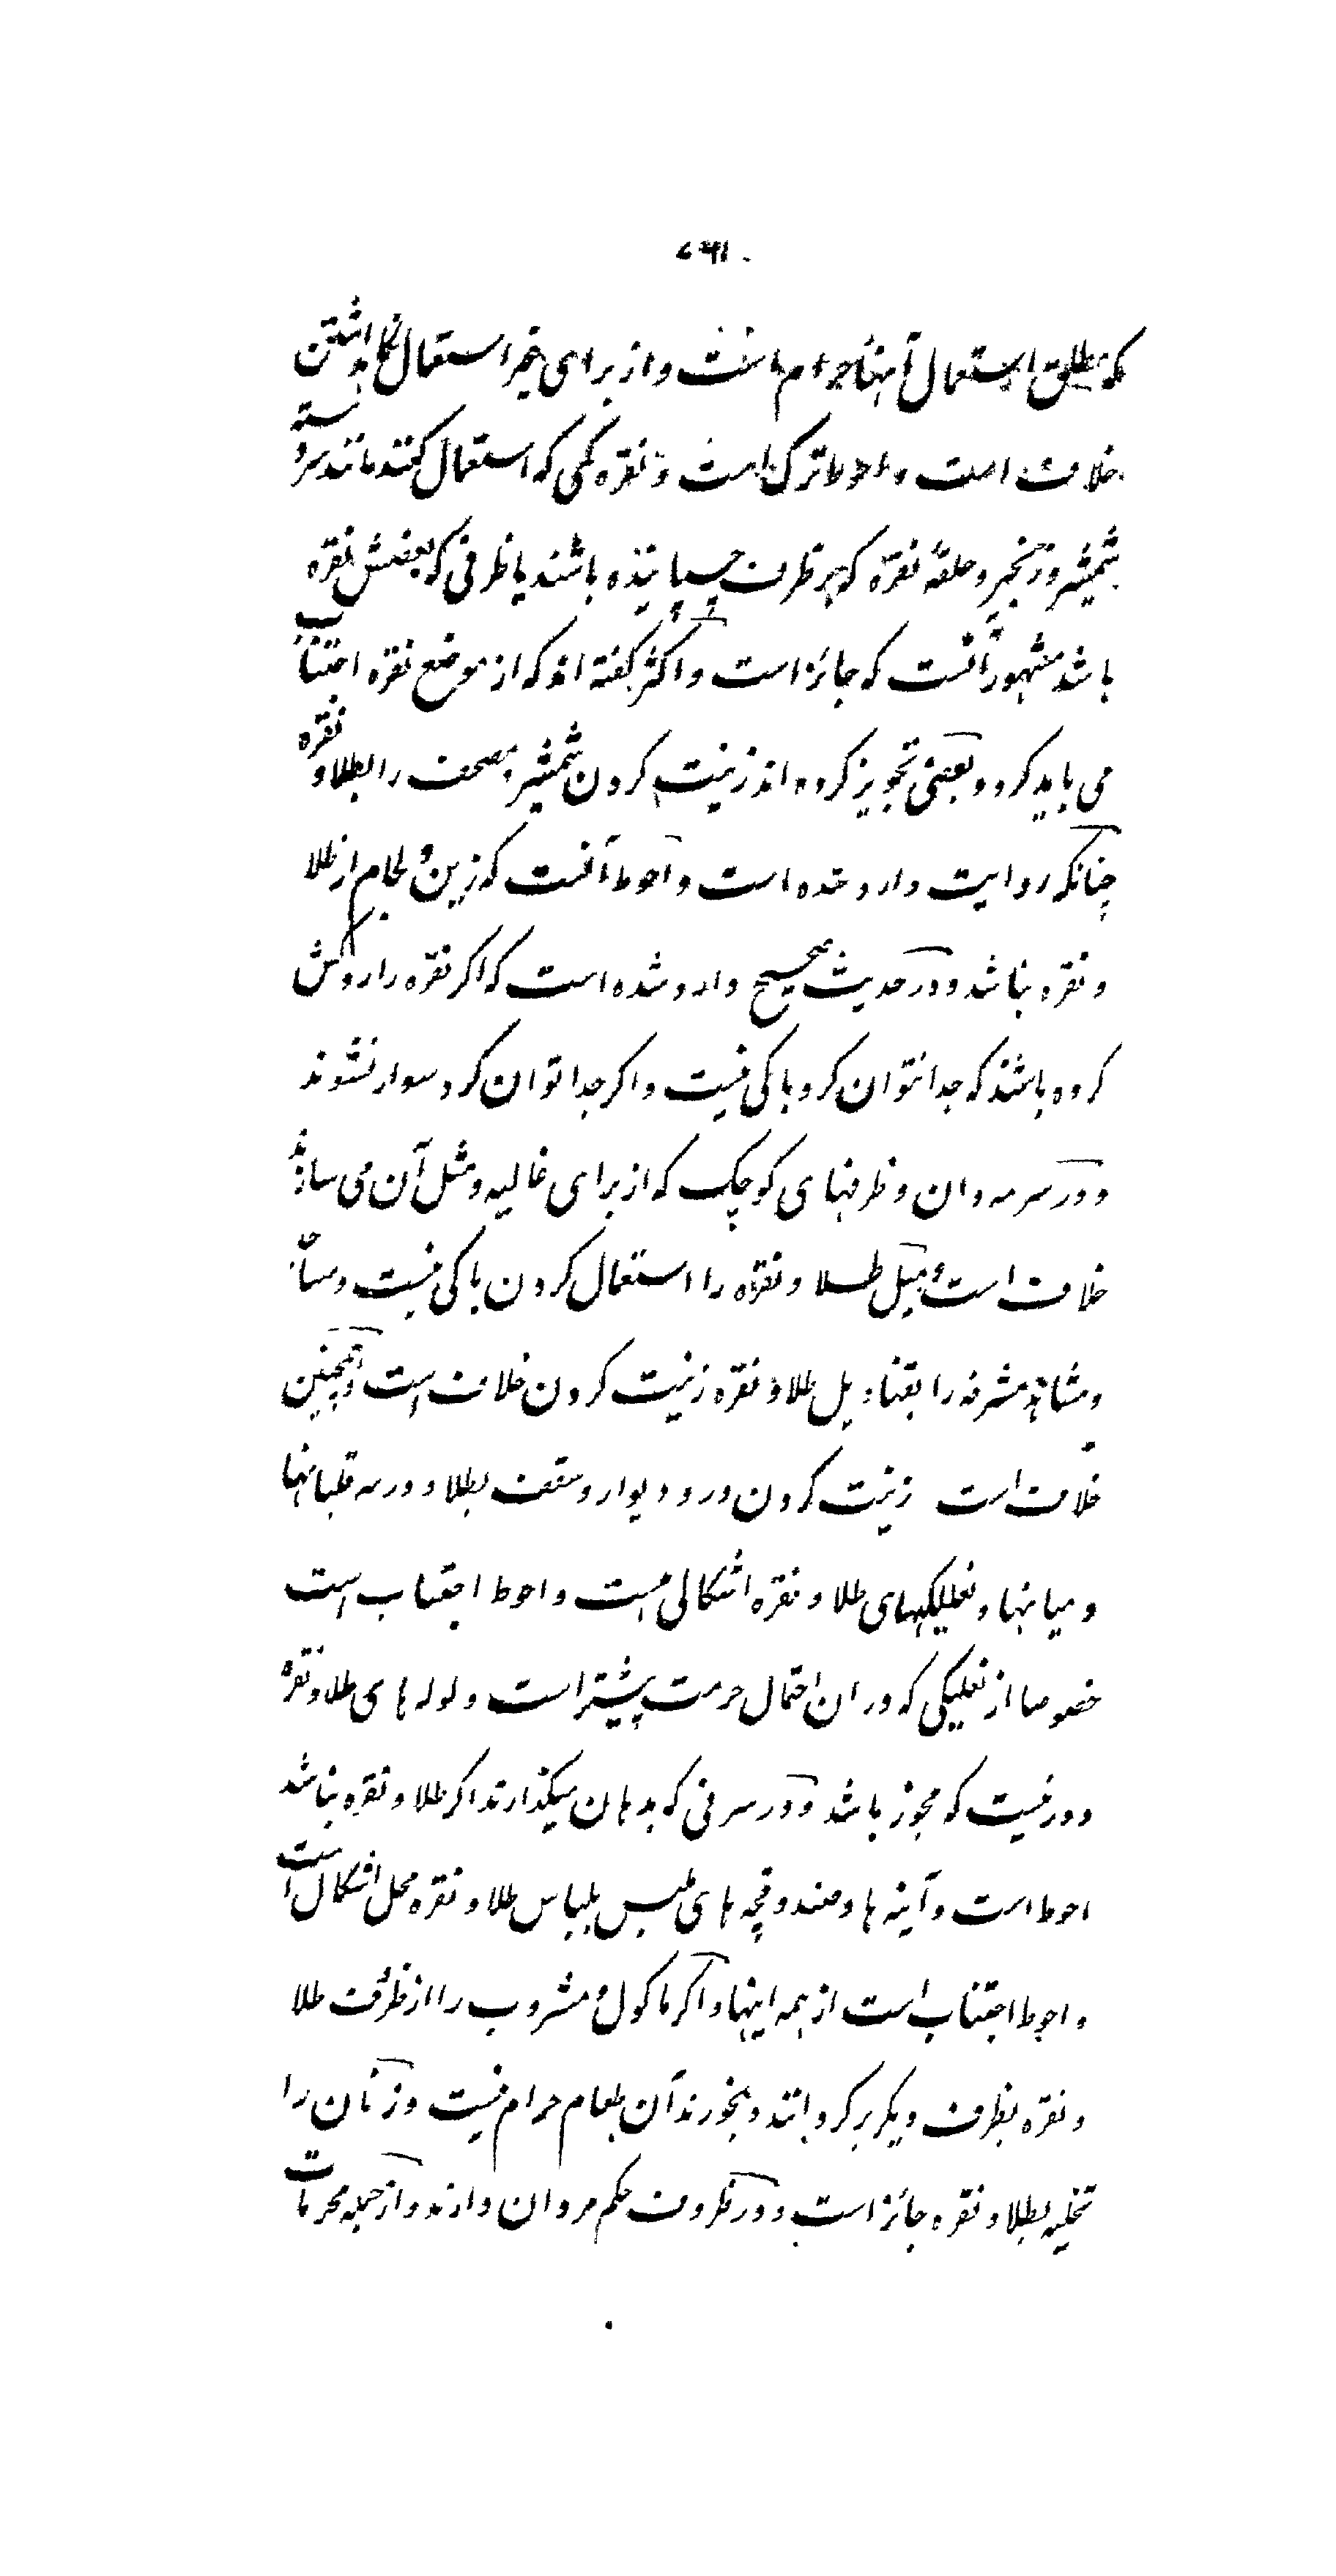 که مطلق استعمال آنها حرام است و از برای غیر استعمال نگاهداشتن
خلاف است و احوط ترک است و نقره کمی که استعمال کنند مانند سر دسته
شمشیر و زنجیر و حلقه نقره که بر ظرف چسبانیده باشند یا ظرفی که بعضش نقره
باشد مشهور آنست که جائز است و اکثر گفته اند که از موضع نقره اجتناب
می باید کرد و بعضی تجویز کرده اند زینت کردن شمشیر و مصحف را بطلا و نقره
چنانکه روایت وارد شده است و احوط آنست که زین و لجام از طلا
و نقره نباشد و در حدیث صحیح وارد شده است که اگر نقره را روکش
کرده باشند که جدا نتوان کرد باکی نیست و اگر جدا توان کرد سوار نشوند
و در سرمه دان و ظرفهای کوچک که از برای غالیه و مثل آن می سازند
خلاف است و میل طلا و نقره را استعمال کردن باکی نیست و مساجد
و مشاهد مشرفه را بقنادیل طلا و نقره زینت کردن خلاف است و همچنین
خلاف است زینت کردن در و دیوار و سقف بطلا و در سه قلیانها
و میانها و نعلبکیهای طلا و نقره اشکالی هست و احوط اجتناب است
خصوصا از نعلبکی که در ان احتمال حرمت بیشتر است و لوله های طلا و نقره
دور نیست که مجوز باشد و در سر نی که بدهان میگذارند اگر طلا و نقره نباشد
احوط است و آینه ها و صندوقچه های ملبس بلباس طلا و نقره محل اشکال است
و احوط اجتناب است از همه اینها و اگر ماکول و مشروب را از ظرف طلا
و نقره بظرف دیگر برگردانند و بخورند آن طعام حرام نیست و زنان را
تحلیه بطلا و نقره جائز است و در ظروف حکم مردان دارند و از جمله محرمات